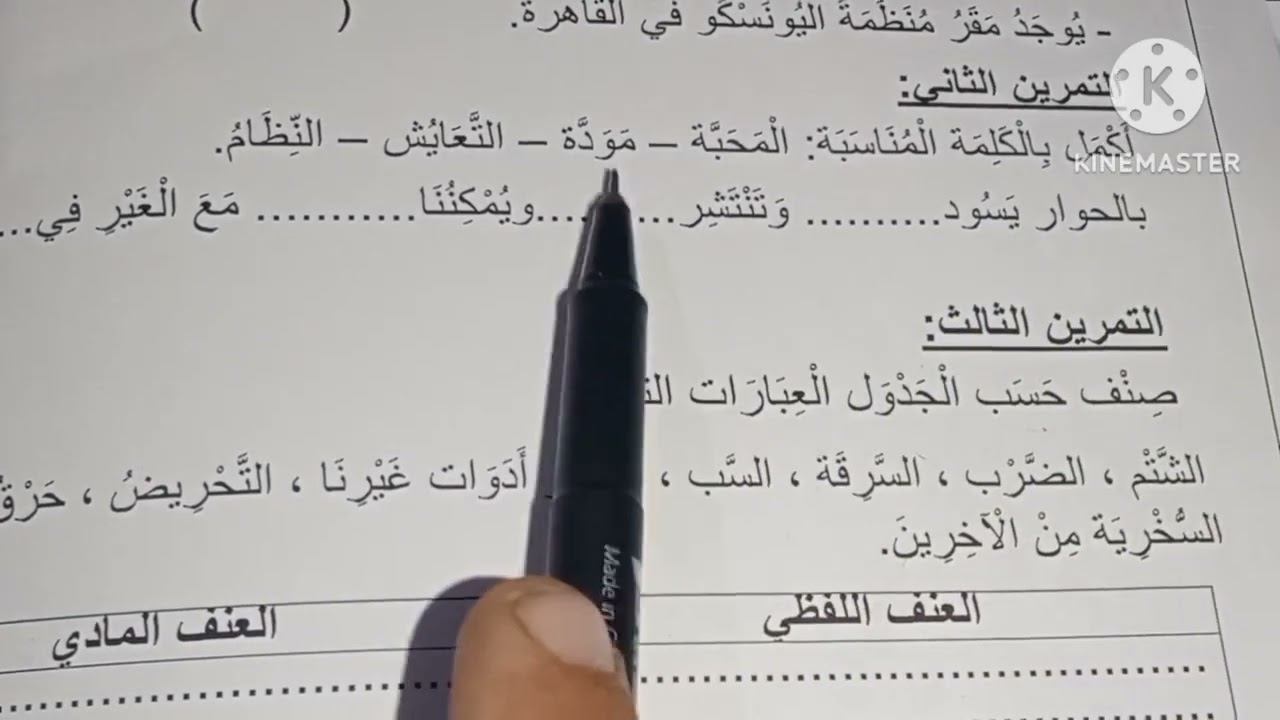 - يُوجَدُ مَقَرُ مُنَظَمَةَ اليُونَسْكُو فِي القَاهرة. ( )
التمرين الثاني:
أَكْمِل بِالْكَلِمَة الْمُنَاسَبَة: الْمَحَبَّة – مَوَدَّة – التَّعَايُش – النِّظَامُ.
بالحوار يَسُود.......... وَتَنْتَشِر..........ويُمْكِنُنَا........... مَعَ الْغَيْرِ فِي...
التمرين الثالث:
صِنْف حَسَب الْجَدْوَل الْعِبَارَات
الشَّتْم ، الضَّرْب ، السَّرِقَة ، السَّب ، أَدَوَات غَيْرِنَا ، التَّحْرِيضُ ، حَرْق
السُّخْرِيَة مِنْ الْآخِرِينَ.
العنف اللفظي العنف المادي
K
KINEMASTER
Made in